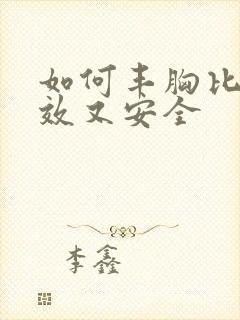 如何丰胸比
效又安全
李鑫